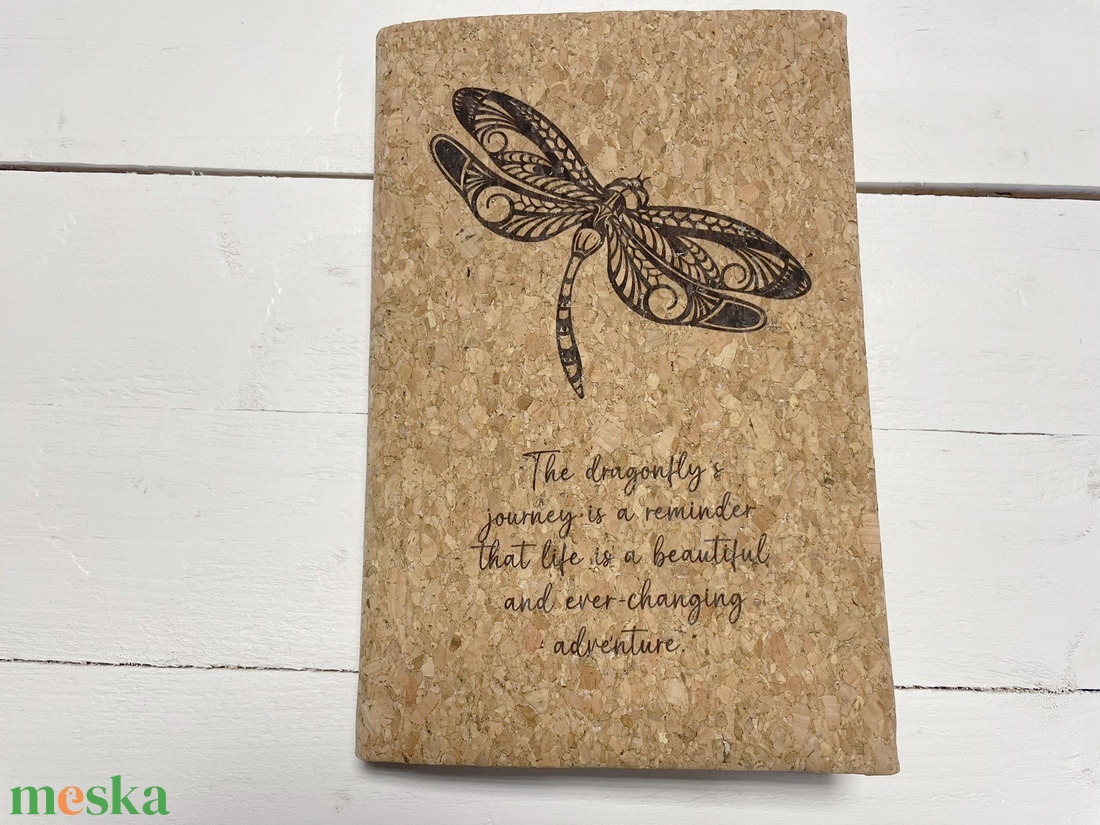 The dragonfly's
journey is a reminder
that life is a beautiful
and ever-changing
adventure.
meska